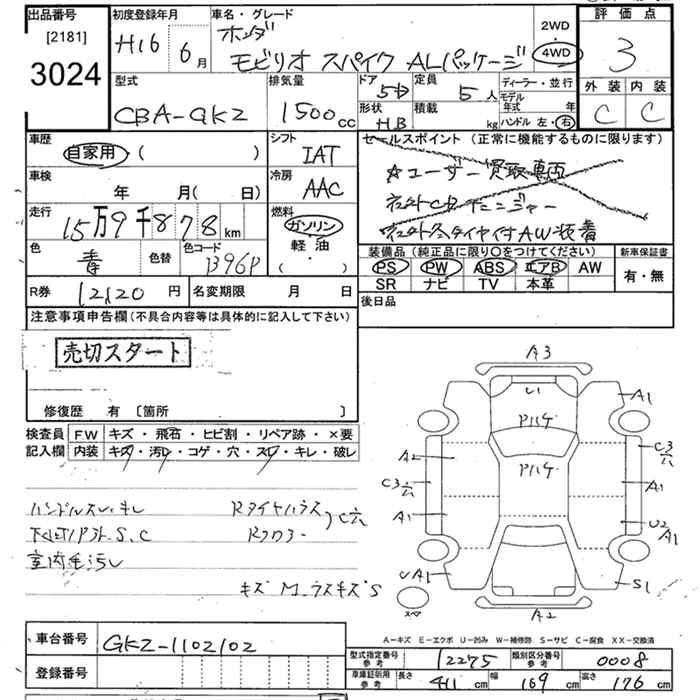 出品番号 初度登録年月 車名・グレード 評価点
[2181] H16年 6月 ホンダ 2WD
3024 モビリオ スパイク ALパッケージ 4WD 3
型式 排気量 ドア 定員 ディーラー・並行 外装 内装
CBA-GK2 1500cc 5D 5人 モデル年式 年 C C
形状 HB 積載 kg ハンドル 左・右
車歴 シフト セールスポイント (正常に機能するものに限ります)
自家用 ( ) IAT ☆ユーザー買取車両
車検 冷房
年 月(日) AAC
走行 燃料
15万9千878km ガソリン
軽油
( )
色 色替 色コード 装備品 (純正品に限り〇をつけてください) 新車保証書
青 B96P PS PW ABS エアB AW 有・無
SR ナビ TV 本革
R券 12120円 名変期限 月 日 後日品
注意事項申告欄 (不具合内容等は具体的に記入して下さい)
売切スタート
修復歴 有 [箇所 ]
検査員 F.W キズ・飛石・ヒビ割・リペア跡・×要
記入欄 内装 キズ・汚レ・コゲ・穴・スレ・キレ・破レ
ハンドルスレ・キレ Rタイヤハウス
下回リ S.C Rフロアー C穴
室内毛汚レ
キズ M
A3
レ1
A1
Pハゲ
A2
C3
穴
Pハゲ
C3
穴
A1
A1
U2
A1
UA1
S1
スペ
A2
A-キズ E-エクボ U-凹み W-補修跡 S-サビ C-腐食 XX-交換済
車台番号 GK2-1102102
型式指定番号 参考 12275 類別区分番号 参考 0008
登録番号
車庫証明用 参考 長さ 411cm 幅 169cm 高さ 176cm